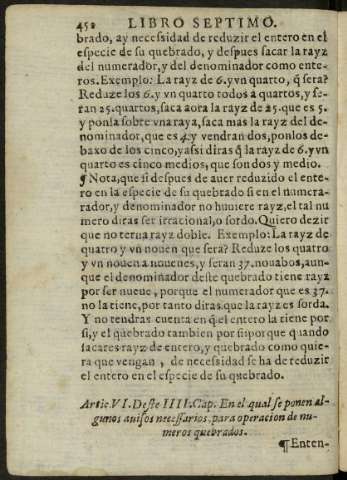 452 LIBRO SEPTIMO.
brado, ay necessidad de reduzir el entero en el
especie de su quebrado, y despues sacar la rayz
del numerador, y del denominador como ente-
ros. Exemplo: La rayz de 6. y vn quarto, q̃ sera?
Reduze los 6. y vn quarto todos a quartos, y se-
ran 25. quartos, saca aora la rayz de 25. que es 5.
y ponla sobre vna raya, saca mas la rayz del de-
nominador, que es 4. y vendran dos, ponlos de-
baxo de los cinco, y assi diras q̃ la rayz de 6. y vn
quarto es cinco medios, que son dos y medio.
¶ Nota, que si despues de auer reduzido el ente-
ro en la especie de su quebrado si en el numera-
rador, y denominador no huuiere rayz, el tal nu
mero diras ser irracional, o sordo. Quiero dezir
que no terna rayz doble. Exemplo: La rayz de
quatro y vn nouen que sera? Reduze los quatro
y vn nouen a nouenes, y seran 37. nouabos, aun-
que el denominador deste quebrado tiene rayz
por ser nueue, porque el numerador que es 37.
no la tiene, por tanto diras que la rayz es sorda.
Y no tendras cuenta en q̃ el entero la tiene por
si, y el quebrado tambien por si: porque quando
sacares rayz de entero, y quebrado como quie-
ra que vengan, de necessidad se ha de reduzir
el entero en el especie de su quebrado.
Artic. VI. Deste IIII. Cap. En el qual se ponen al-
gunos auisos necessarios, para operacion de nu-
meros quebrados.
¶ Enten-